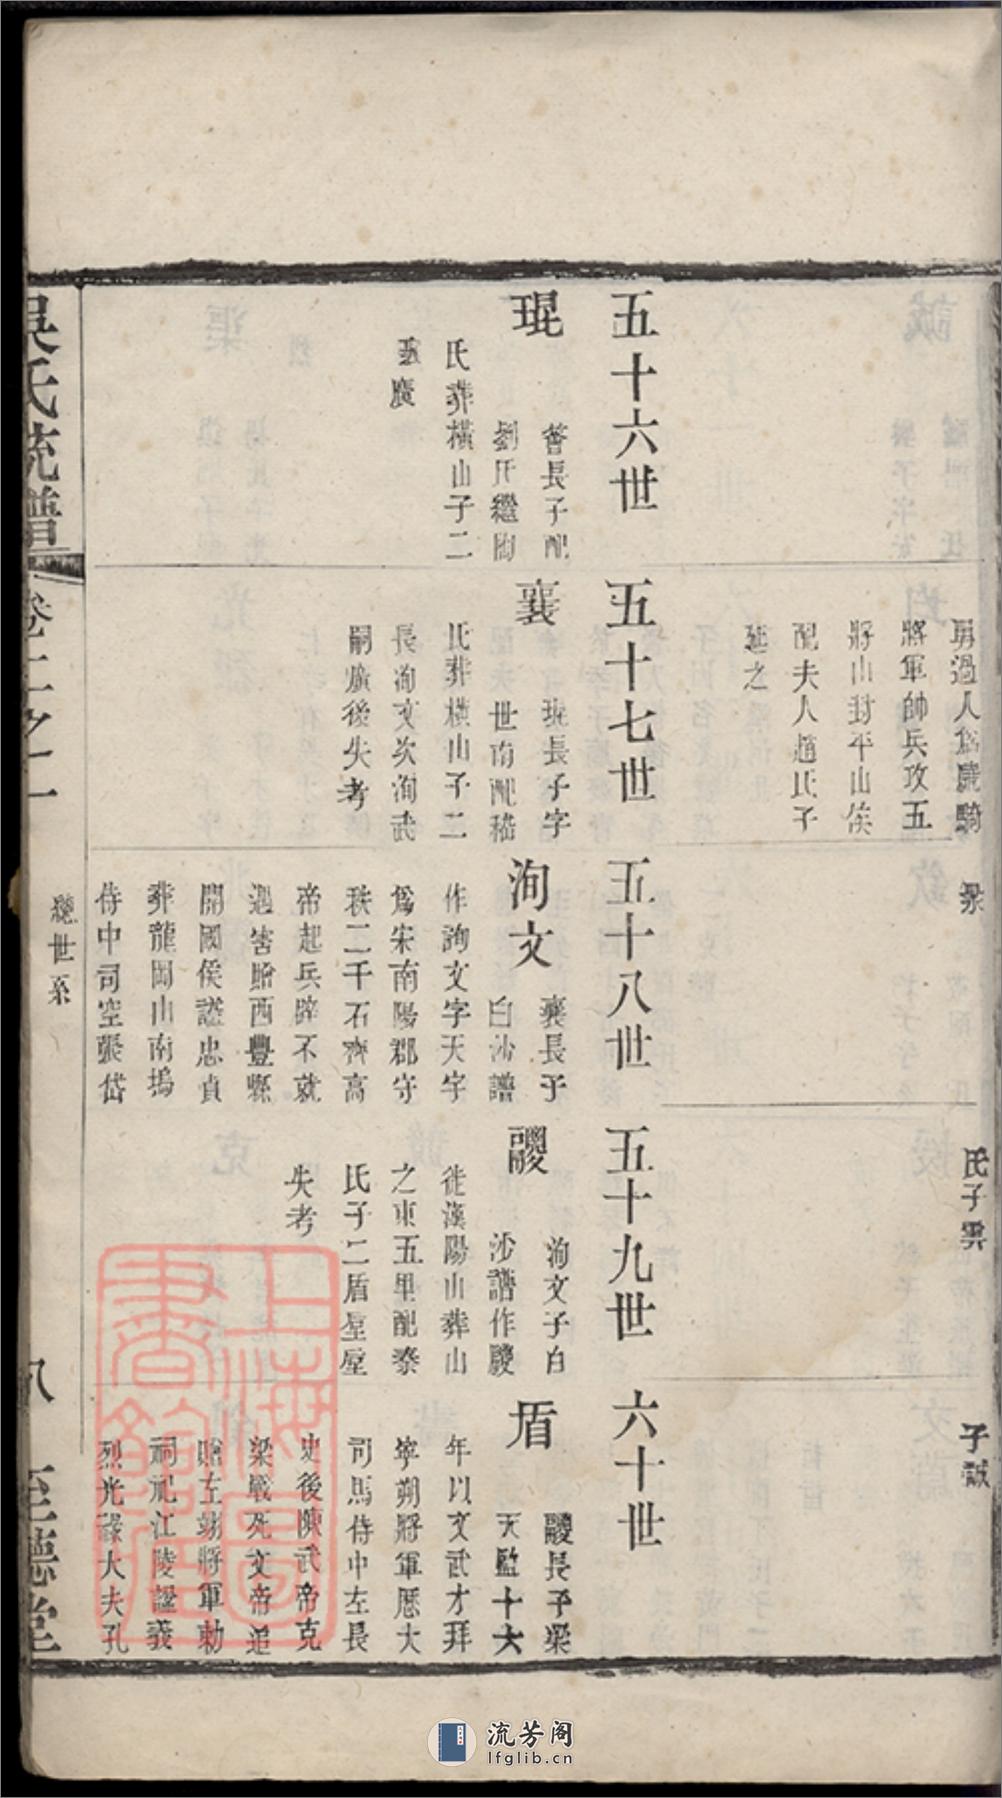 勇過人爲驍騎
將軍帥兵攻五
將山封平山侯
配夫人趙氏子
延之
氏子雲
子誠
五十六世
琨
薈長子配
劉氏繼陶
氏葬橫山子二
襄廣
五十七世
襄
琨長子字
世南配嵇
氏葬橫山子二
長洵文次洵武
嗣廣後失考
五十八世
洵文
襄長子
白沙譜
作詢文字天字
爲宋南陽郡守
秩二千石齊高
帝起兵辟不就
遇害贈西豐縣
開國侯諡忠貞
葬龍岡山南塢
侍中司空張岱
五十九世
洵文子白
沙譜作
徙漢陽山葬山
之東五里配蔡
氏子二盾坙坙
失考
六十世
盾
長子梁
天監十六
年以文武才拜
寧朔將軍歷大
司馬侍中左長
史後陳武帝克
梁戰死文帝追
贈左翊將軍勅
祠祀江陵諡義
烈光祿大夫孔
吳氏統譜
卷二之一
總世系
八
至德堂
上海圖書館藏
流芳阁
lfglib.cn